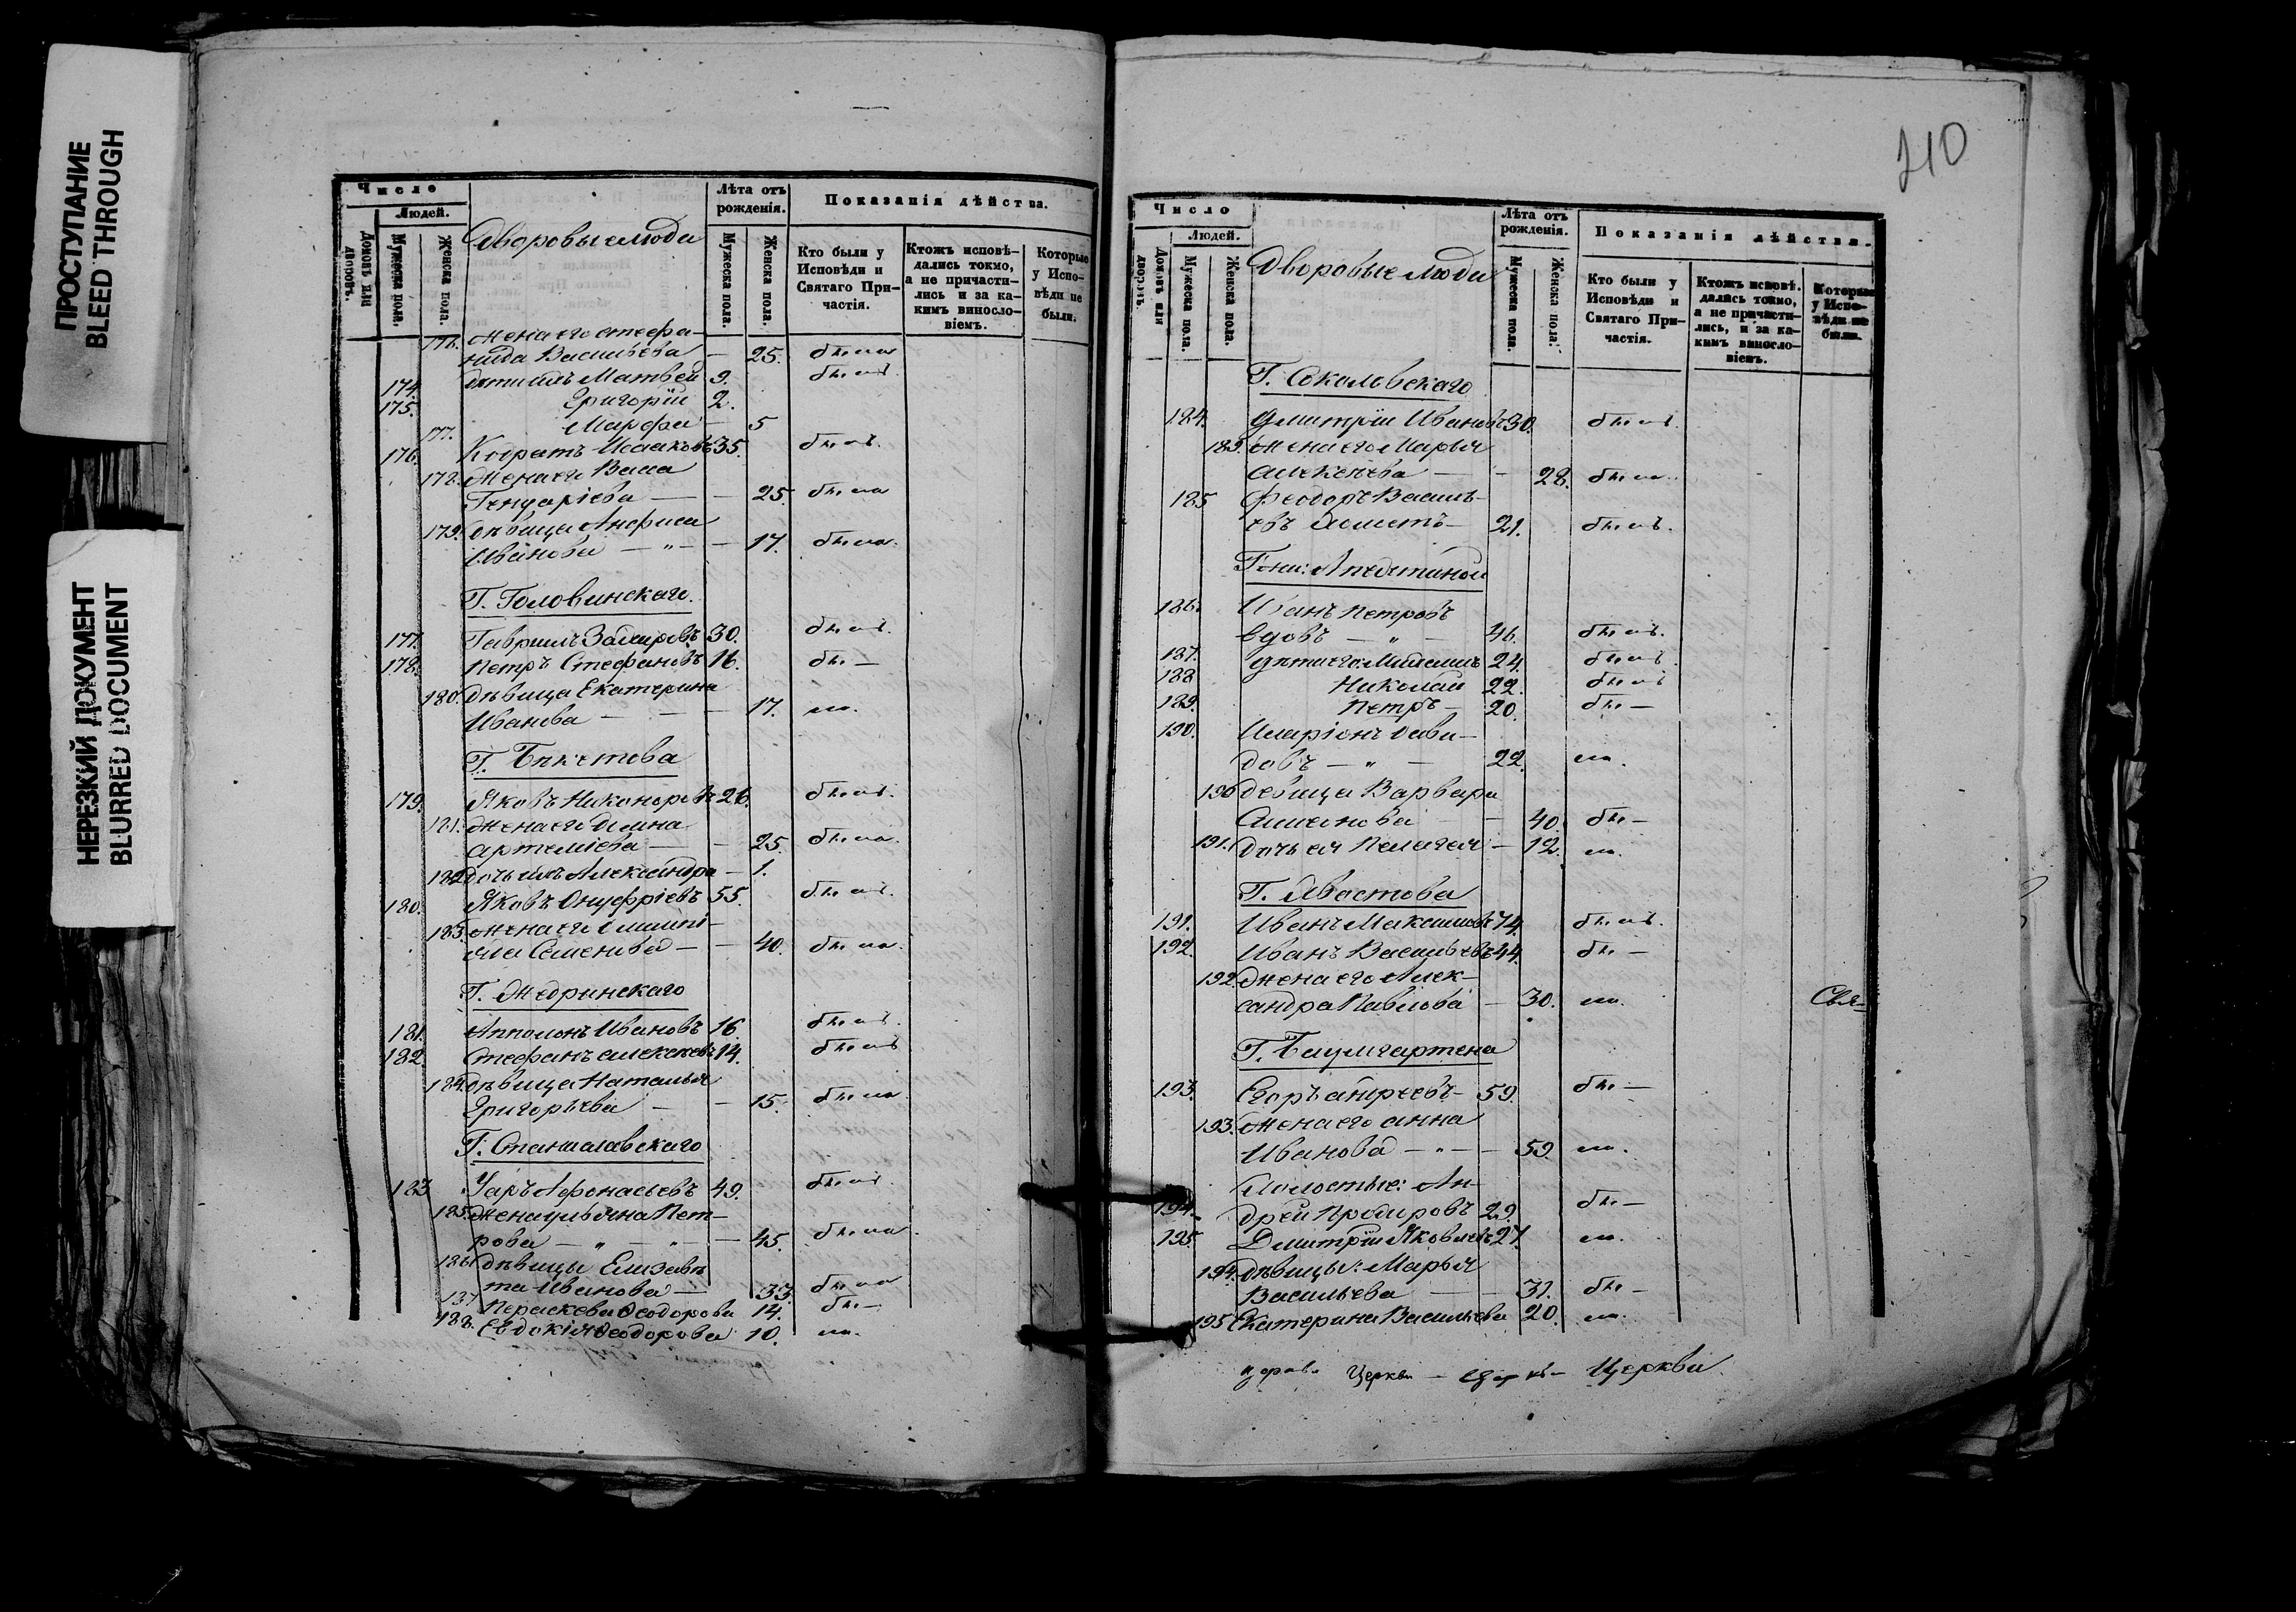 ПРОСТУПАНИЕ
BLEED THROUGH
НЕРЕЗКИЙ ДОКУМЕНТ
BLURRED DOCUMENT
Число
Людей.
Домовъ или дворовъ.
Мужеска пола.
Женска пола.
Дворовые люди
Лѣта отъ рожденія.
Мужеска пола.
Женска пола.
Показанія дѣйства.
Кто были у Исповѣди и Святаго Причастія.
Ктожъ исповѣдались токмо, а не причастились и за какимъ винословіемъ.
Которые у Исповѣди не были.
176. Жена его Стефа-
нида Васильева — 25. была
174. Дети ихъ Матвей 9. былъ
175. Григорій 2.
177. Марфа — 5
176. Кодратъ Исааковъ 35. былъ.
178. Жена его Васса
— — 25. была
179. Дѣвица Анфиса
Иванова — „ — — 17. была.
Г. Головинскаго.
177. Гавриилъ 30. былъ.
178. Петръ Стефановъ 16. бы —
180. Дѣвица Екатерина
Иванова — — — 17. ла.
Г. Бекетова
179. Яковъ Никоноровъ 26. былъ.
181. Жена его Домна
Артемiева — — 25. была.
182 Дочь ихъ Александра — 1.
180. Яковъ Онуфріевъ 55. былъ.
183. Жена его Олимпі-
ада Семенова — — 40. была.
Г. Жедринскаго
181. Апполонъ Ивановъ 16 былъ.
182. Стефанъ Алексеевъ 14. былъ
184. Дѣвица Наталья
Григорьева — — 15. была
Г. Станиславскаго
183 Уаръ Афонасьевъ 49. былъ
185. Жена Ульяна Пет-
рова — „ — „ — — 45. была
186. Дѣвицы Елизаве-
та Иванова — 33. была
187 Параскева Ѳеодорова 14. бы —
188. Евдокія Ѳеодорова 10. ла.
210
Число
Людей.
Домовъ или дворовъ.
Мужеска пола.
Женска пола.
Дворовые люди
Лѣта отъ рожденія.
Мужеска пола.
Женска пола.
Показанія дѣйства.
Кто были у Исповѣди и Святаго Причастія.
Ктожъ исповѣдались токмо, а не причастились, и за какимъ винословіемъ.
Которые у Исповѣди не были.
Г. Соколовскаго
184. Дмитрій Ивановъ 30. былъ.
189. Жена его Марья
Алексеева — — 28. была.
185 Феодоръ Василь-
евъ холостъ — 21. былъ.
186. Иванъ Петровъ
вдовъ — „ — 46. былъ.
187. Дети его: 24. былъ
188 Николай 22. былъ
189. Петръ — 20. бы —
190. Иларіонъ Дави-
довъ — „ — 22. ла.
190 Девица Варвара
Симонова — — 40. бы —
191. Дочь ея Пелагея — 12. ла.
Г. Хвостова
191. Иванъ Максимовъ 74. былъ.
192. Иванъ Васильевъ 44. бы —
192 Жена его Алек-
сандра Павлова — 30. ла.
Г. Баумгартена
193. Егоръ Андреевъ — 59. бы —
193. Жена его Анна
Иванова — „ — — 59 ла.
Холостые: Ан-
194. дрей 29. бы —
195. Дмитрій Яковлевъ 27. ла.
194. Дѣвицы: Марья
Васильева — — 31. бы —
195 Екатерина Васильева 20. ла.
Церкви — Церкви